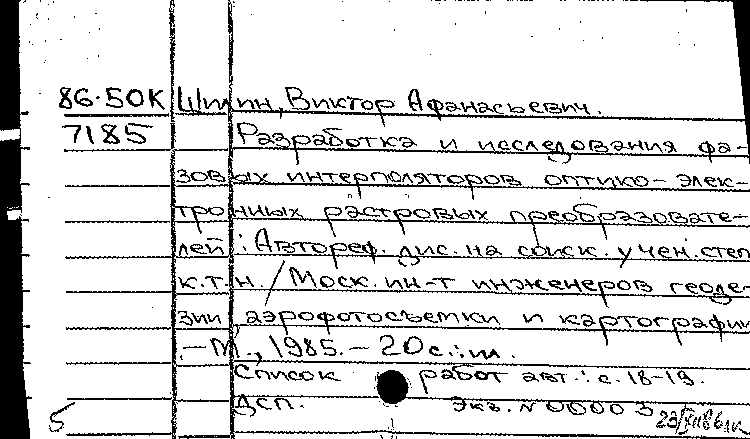 86-50К Шипин, Виктор Афанасьевич.
7185 Разработка и исследования фа-
зовых интерполяторов оптико-элек-
тронных растровых преобразовате-
лей : Автореф. дис. на соиск. учен. степ.
к.т.н. / Моск. ин-т инженеров геоде-
зии, аэрофотосъемки и картографии
.-М., 1985.-20 с.:ил.
Список работ авт.: с. 18-19.
ДСП. Экз. N 00003
5